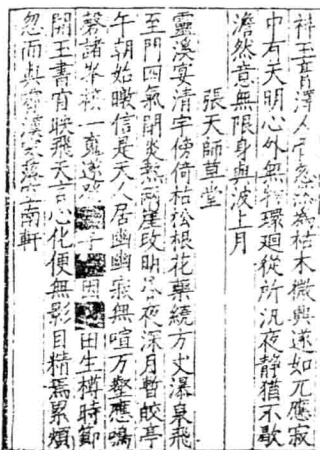 神玉膏澤人官忽 為枯木微興遂如兀應寂
中有天明心外無 環廻從所汎夜靜猶不歇
澹然意無限身與波上月
張天師草堂
靈溪宴清宇傍倚枯松根花藥繞方丈瀑泉飛
至門四氣閉炎熱兩崖改明 夜深月暫皎亭
午朝始暾信是天人居幽幽寂無喧万壑應鳴
磬諸峯 一 遂 子 田生樽時節
開玉書窅映飛天言心化便無影目精焉累煩
忽而與 溪 落 南軒